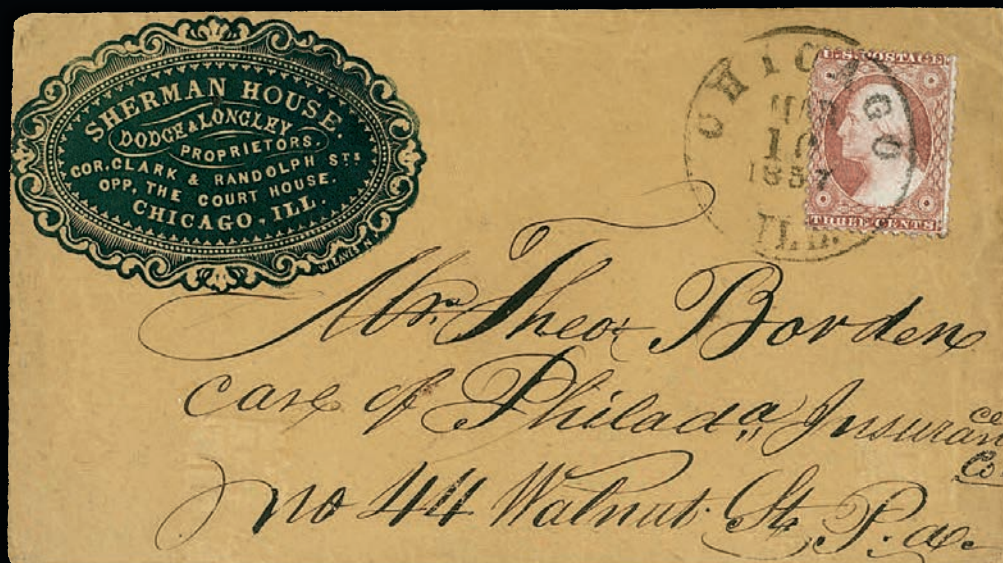 SHERMAN HOUSE.
DODGE & LONGLEY
PROPRIETORS.
COR. CLARK & RANDOLPH STS
OPP. THE COURT HOUSE.
CHICAGO. ILL.
CHICAGO
MAR
10
1857
ILL.
U.S. POSTAGE
THREE CENTS
Mr. Theo. Borden
care of Philada Insurance
Co
no 44 Walnut St, Pa.